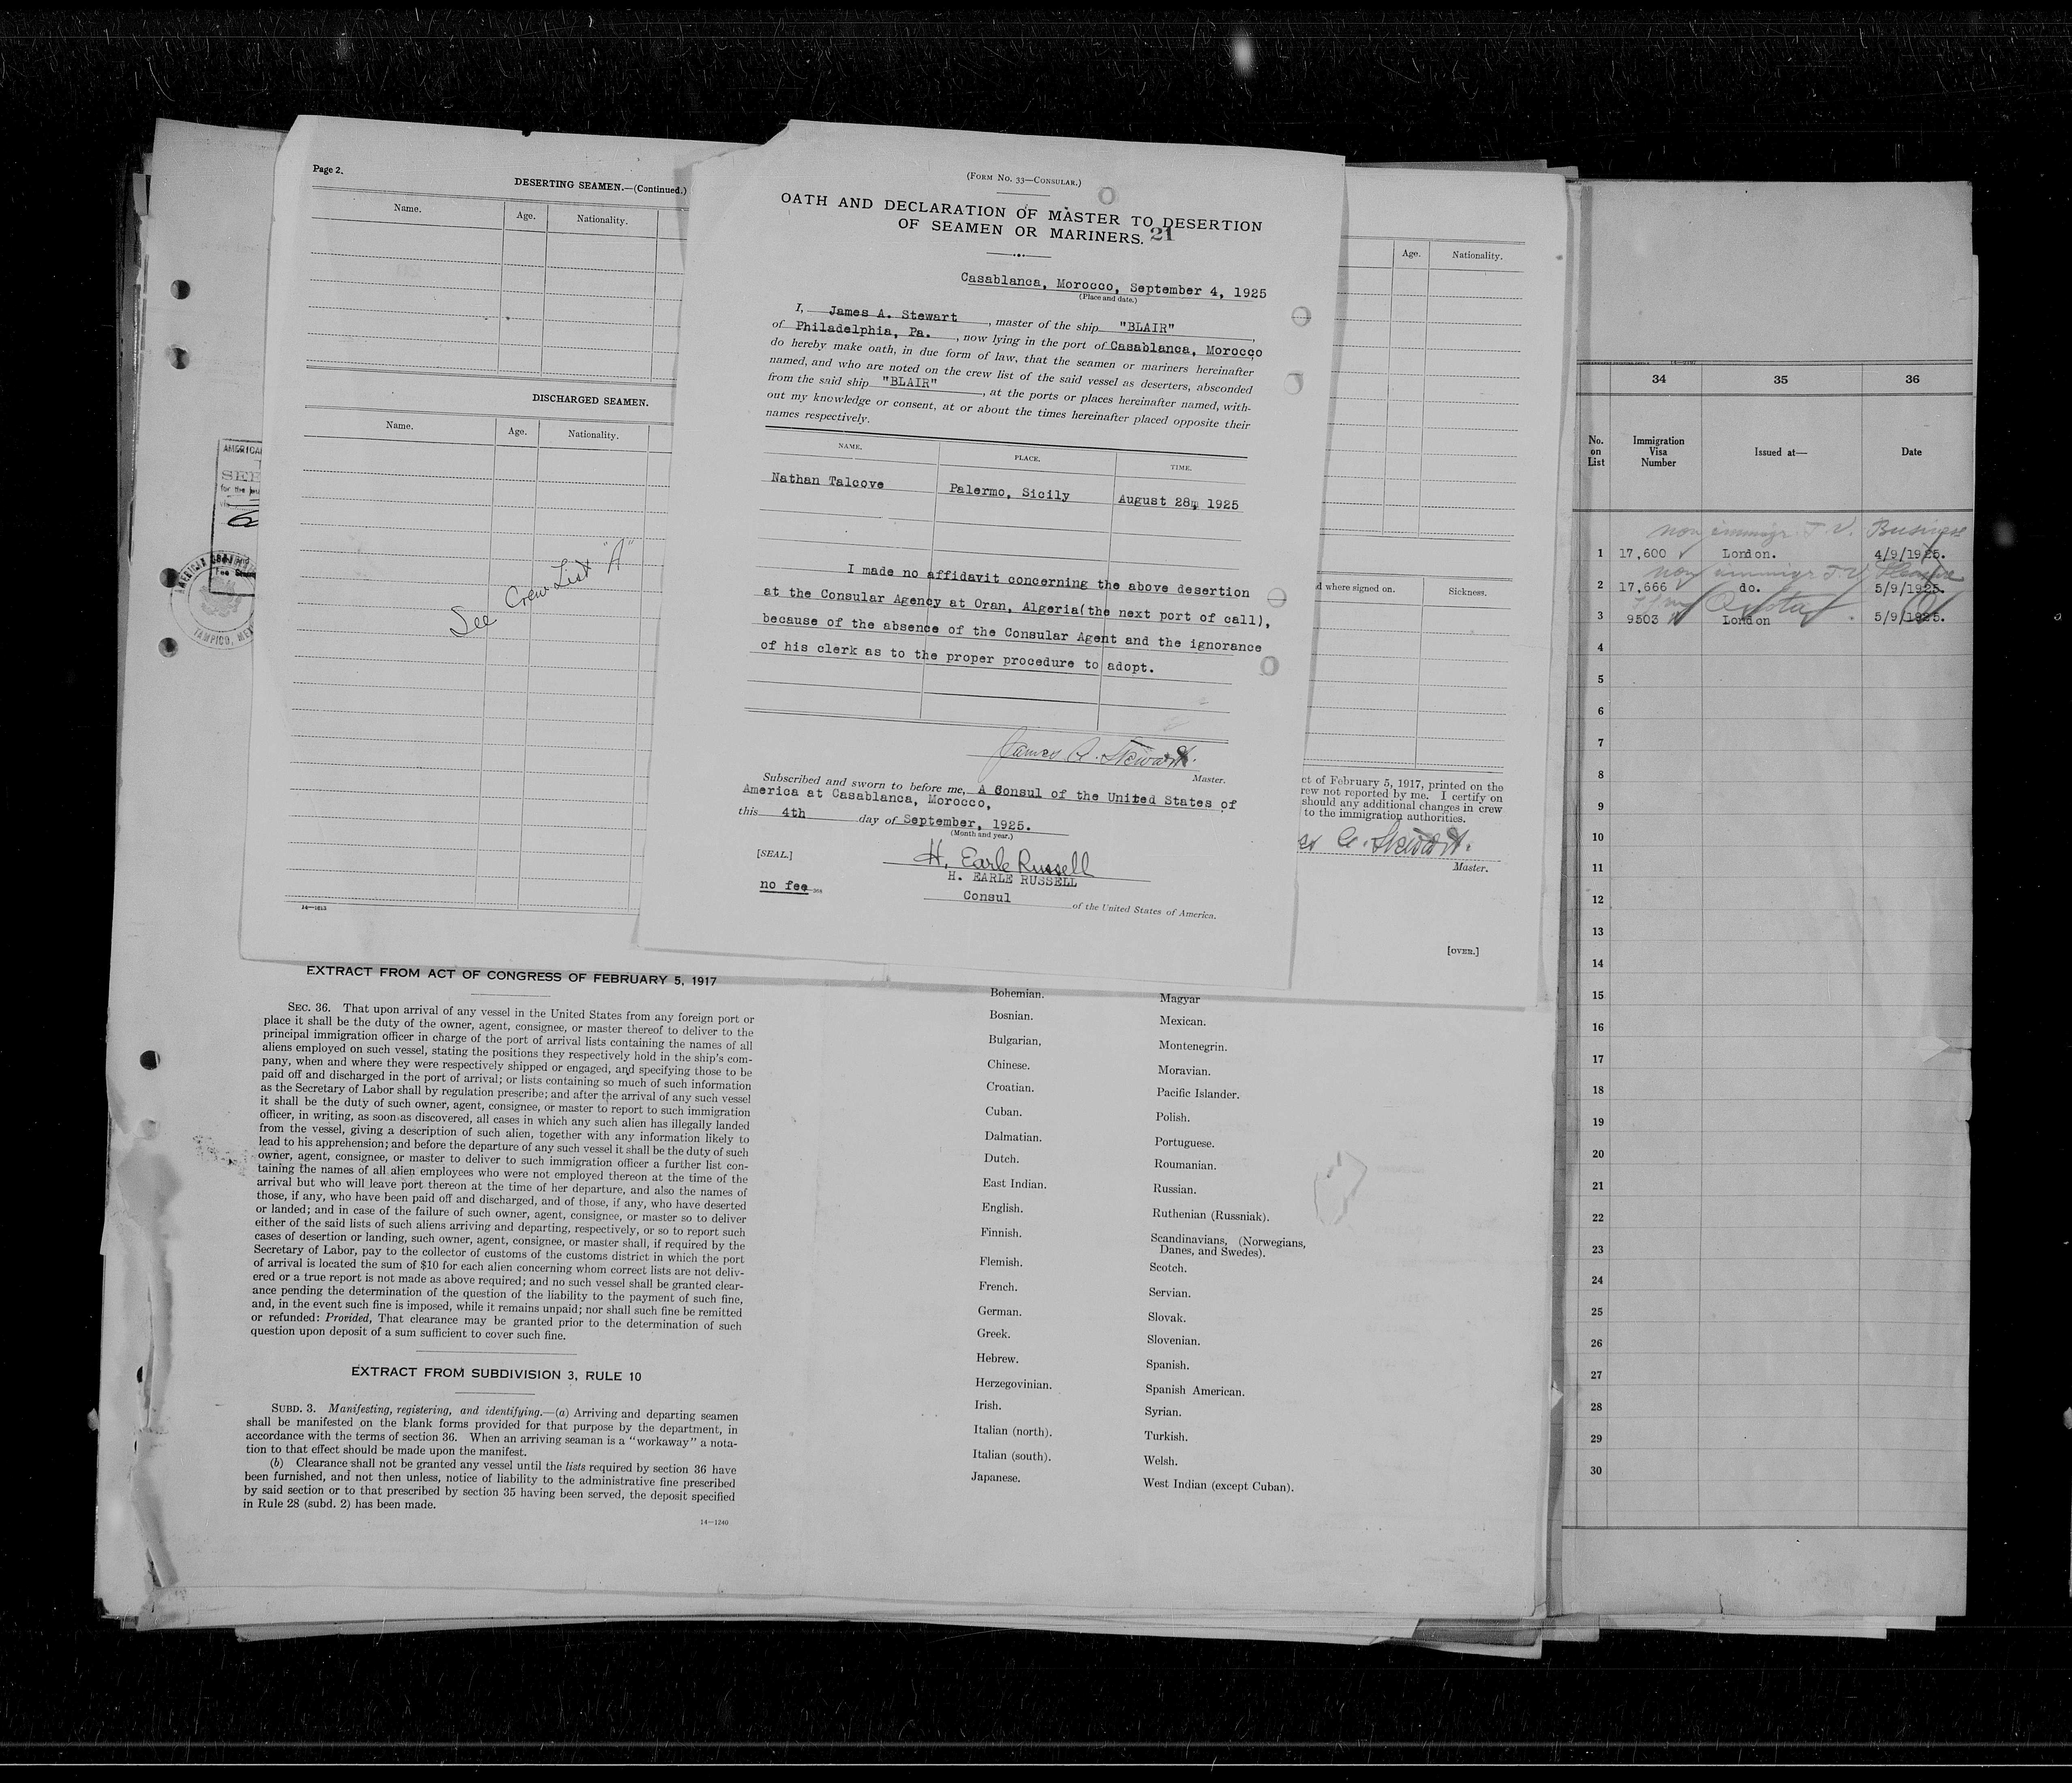 Page 2.
DESERTING SEAMEN.—(Continued.)
Name. Age. Nationality.
DISCHARGED SEAMEN.
Name. Age. Nationality.
See Crew List "A"
14—1613
AMERICA
SEP
for the
AMERICAN
TAMPICO, MEX
(FORM NO. 33—CONSULAR.)
OATH AND DECLARATION OF MASTER TO DESERTION
OF SEAMEN OR MARINERS. 21
Casablanca, Morocco, September 4, 1925
(Place and date.)
I, James A. Stewart, master of the ship "BLAIR",
of Philadelphia, Pa., now lying in the port of Casablanca, Morocco
do hereby make oath, in due form of law, that the seamen or mariners hereinafter
named, and who are noted on the crew list of the said vessel as deserters, absconded
from the said ship "BLAIR", at the ports or places hereinafter named, with-
out my knowledge or consent, at or about the times hereinafter placed opposite their
names respectively.
NAME. PLACE. TIME.
Nathan Talcove Palermo, Sicily August 28, 1925
I made no affidavit concerning the above desertion
at the Consular Agency at Oran, Algeria(the next port of call),
because of the absence of the Consular Agent and the ignorance
of his clerk as to the proper procedure to adopt.
James A. Stewart.
Master.
Subscribed and sworn to before me, A Consul of the United States of
America at Casablanca, Morocco,
this 4th day of September, 1925.
(Month and year.)
[SEAL.]
H. Earle Russell
H. EARLE RUSSELL
no fee
Consul of the United States of America.
Age. Nationality.
d where signed on. Sickness.
ct of February 5, 1917, printed on the
rew not reported by me. I certify on
should any additional changes in crew
to the immigration authorities.
es A. Stewart.
Master.
[OVER.]
EXTRACT FROM ACT OF CONGRESS OF FEBRUARY 5, 1917
SEC. 36. That upon arrival of any vessel in the United States from any foreign port or
place it shall be the duty of the owner, agent, consignee, or master thereof to deliver to the
principal immigration officer in charge of the port of arrival lists containing the names of all
aliens employed on such vessel, stating the positions they respectively hold in the ship's com-
pany, when and where they were respectively shipped or engaged, and specifying those to be
paid off and discharged in the port of arrival; or lists containing so much of such information
as the Secretary of Labor shall by regulation prescribe; and after the arrival of any such vessel
it shall be the duty of such owner, agent, consignee, or master to report to such immigration
officer, in writing, as soon as discovered, all cases in which any such alien has illegally landed
from the vessel, giving a description of such alien, together with any information likely to
lead to his apprehension; and before the departure of any such vessel it shall be the duty of such
owner, agent, consignee, or master to deliver to such immigration officer a further list con-
taining the names of all alien employees who were not employed thereon at the time of the
arrival but who will leave port thereon at the time of her departure, and also the names of
those, if any, who have been paid off and discharged, and of those, if any, who have deserted
or landed; and in case of the failure of such owner, agent, consignee, or master so to deliver
either of the said lists of such aliens arriving and departing, respectively, or so to report such
cases of desertion or landing, such owner, agent, consignee, or master shall, if required by the
Secretary of Labor, pay to the collector of customs of the customs district in which the port
of arrival is located the sum of $10 for each alien concerning whom correct lists are not deliv-
ered or a true report is not made as above required; and no such vessel shall be granted clear-
ance pending the determination of the question of the liability to the payment of such fine,
and, in the event such fine is imposed, while it remains unpaid; nor shall such fine be remitted
or refunded: Provided, That clearance may be granted prior to the determination of such
question upon deposit of a sum sufficient to cover such fine.
EXTRACT FROM SUBDIVISION 3, RULE 10
SUBD. 3. Manifesting, registering, and identifying.—(a) Arriving and departing seamen
shall be manifested on the blank forms provided for that purpose by the department, in
accordance with the terms of section 36. When an arriving seaman is a "workaway" a nota-
tion to that effect should be made upon the manifest.
(b) Clearance shall not be granted any vessel until the lists required by section 36 have
been furnished, and not then unless, notice of liability to the administrative fine prescribed
by said section or to that prescribed by section 35 having been served, the deposit specified
in Rule 28 (subd. 2) has been made.
14—1240
Bohemian. Magyar
Bosnian. Mexican.
Bulgarian, Montenegrin.
Chinese. Moravian.
Croatian. Pacific Islander.
Cuban. Polish.
Dalmatian. Portuguese.
Dutch. Roumanian.
East Indian. Russian.
English. Ruthenian (Russniak).
Finnish. Scandinavians, (Norwegians,
Danes, and Swedes).
Flemish. Scotch.
French. Servian.
German. Slovak.
Greek. Slovenian.
Hebrew. Spanish.
Herzegovinian. Spanish American.
Irish. Syrian.
Italian (north). Turkish.
Italian (south). Welsh.
Japanese. West Indian (except Cuban).
34 35 36
No. on List Immigration Visa Number Issued at— Date
non immigr. T.V. Business
1 17,600 London. 4/9/1925.
non immigr T.V.
2 17,666 do. 5/9/1925.
3 9503 London 5/9/1925.
4
5
6
7
8
9
10
11
12
13
14
15
16
17
18
19
20
21
22
23
24
25
26
27
28
29
30